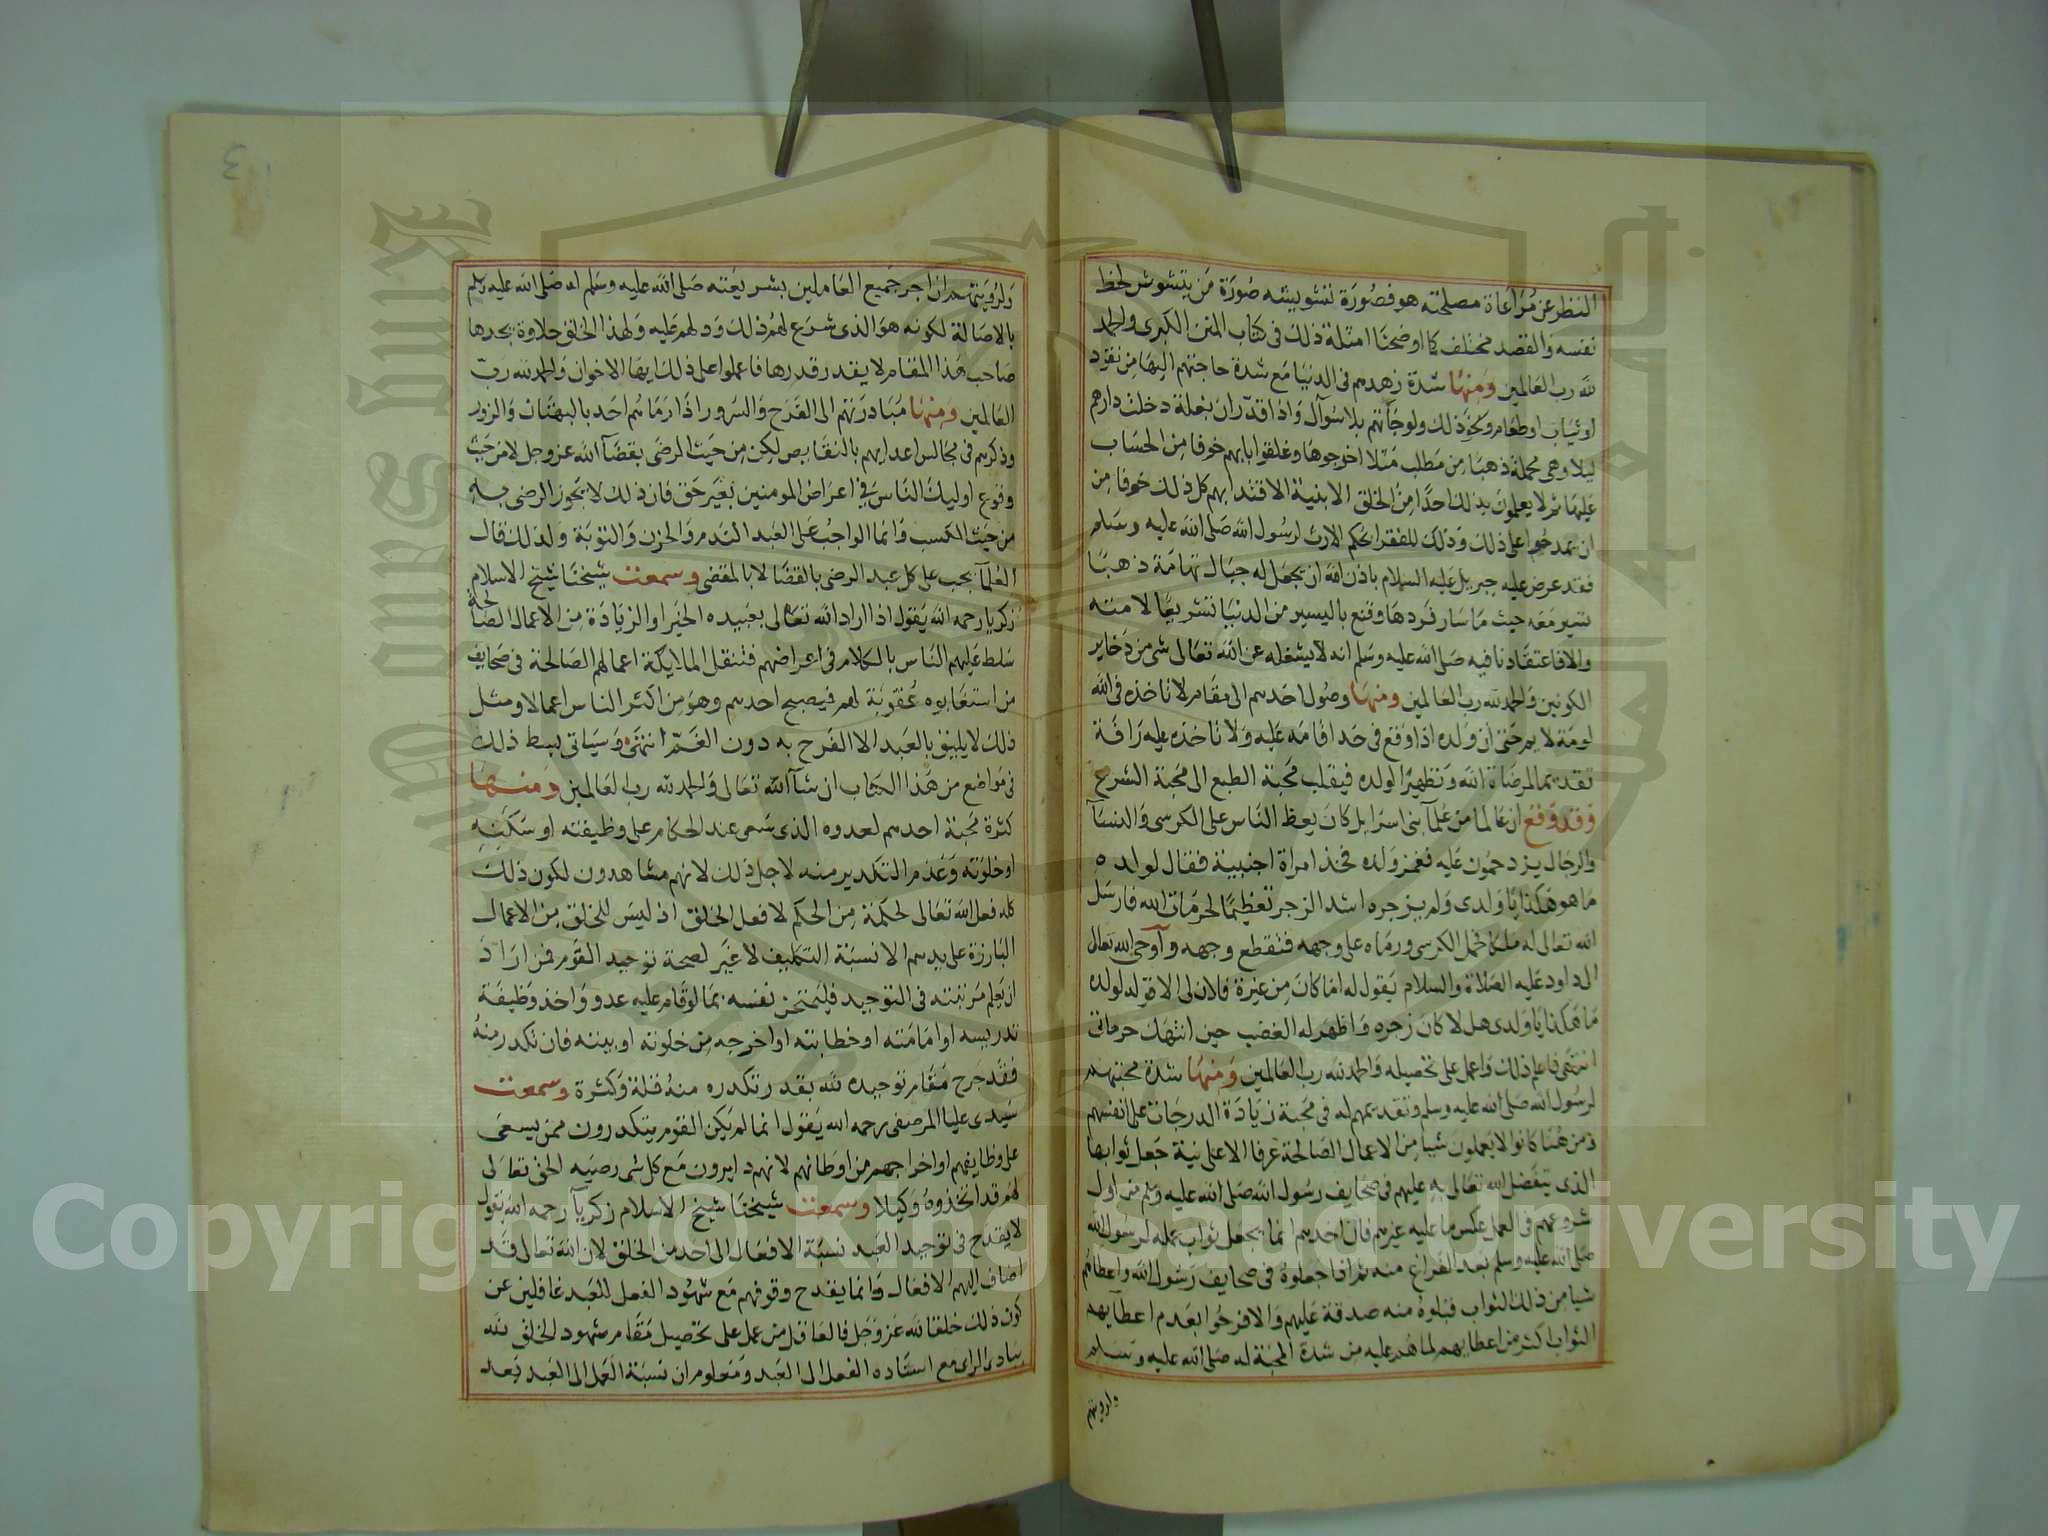 النظر عن مراعاة مصلحته هو فصورة تشويشه صورة من يتشوش لحظ
نفسه والقصد مختلف كما اوضحنا امثلة ذلك فى كتاب المنن الكبرى والحمد
لله رب العالمين ومنها شدة زهدهم فى الدنيا مع شدة حاجتهم اليها من نقود
او ثياب او طعام ونحو ذلك ولو جاتهم بلا سوال واذا قدر ان بغلة دخلت دارهم
ليلا وهى محملة ذهبا من مطلب مثلا اخرجوها وغلقوا بابهم خوفا من الحساب
عليها ثم لا يعلمون بذلك احدا من الخلق الا بنية الاقتدا بهم كل ذلك خوفا من
ان يمدحوا على ذلك وذلك للفقرا بحكم الارث لرسول الله صلى الله عليه وسلم
فقد عرض عليه جبريل عليه السلام باذن الله ان يجعل له جبال تهامة ذهبا
تسير معه حيث ما سار فردها وقنع باليسير من الدنيا تشريعا لامته
والا فاعتقادنا فيه صلى الله عليه وسلم انه لا يشغله عن الله تعالى شى من ذخاير
الكونين والحمد لله رب العالمين ومنها وصول احدهم الى مقام لا تاخذه فى الله
لومة لايم حتى ان ولده اذا وقع فى حد اقامه عليه ولا تاخذه عليه رافة
تقديما لمرضاة الله وتطهيرا لولده فيقلب محبة الطبع الى محبة الشرع
وقد وقع ان عالما من علمآ بنى اسرايل كان يعظ الناس على الكرسى والنسآ
والرجال يزدحمون عليه فغمز ولده فخذ امراة اجنبية فقال لولده
ما هو هكذا يا ولدى ولم يزجره اشد الزجر تعظيما لحرمات الله فارسل
الله تعالى له ملكا فحمل الكرسى ورماه على وجهه فتقطع وجهه وآوحى الله تعالى
الى داود عليه الصلاة والسلام يقول له اما كان من غيرة فلان لى الا قوله لولده
ما هكذا يا ولدى هل لا كان زجره واظهر له الغضب حين انتهك حرماتى
انتهى فاعلم ذلك واعمل على تحصيله والحمد لله رب العالمين ومنها شدة محبتهم
لرسول الله صلى الله عليه وسلم وتقديمهم له فى محبة زيادة الدرجات على انفسهم
ومن هنا كانوا لا يعملون شيا من الاعمال الصالحة عرفا الا على نية جعل ثوابها
الذى يتفضل الله تعالى به عليهم فى صحايف رسول الله صلى الله عليه وسلم من اول
شروعهم فى العمل عكس ما عليه غيرهم فان احدهم انما يجعل ثواب عمله لرسول الله
صلى الله عليه وسلم بعد الفراغ منه ثم اذا جعلوه فى صحايف رسول الله واعطاهم
شيا من ذلك الثواب قبلوه منه صدقة عليهم والا فرحوا بعدم اعطايهم
الثواب اكثر من اعطايهم لما هم عليه من شدة المحبة له صلى الله عليه وسلم
ولرويتهم
ولرويتهم ان اجر جميع العاملين بشريعته صلى الله عليه وسلم له صلى الله عليه وسلم
بالاصالة لكونه هو الذى شرع لهم ذلك ودلهم عليه ولهذا الخلق حلاوة يجدها
صاحب هذا المقام لا يقدر قدرها فاعملوا على ذلك ايها الاخوان والحمد لله رب
العالمين ومنها مبادرتهم الى الفرح والسرور اذا رماهم احد بالبهتان والزور
وذكرهم فى مجالس اعدايهم بالنقايص لكن من حيث الرضى بقضآ الله عز وجل لا من حيث
وقوع اوليك الناس فى اعراض المومنين بغير حق فان ذلك لا يجوز الرضى به
من حيث الكسب وانما الواجب على العبد الندم والحزن والتوبة ولذلك قال
العلمآ يجب على كل عبد الرضى بالقضا لا بالمقضى وسمعت شيخنا شيخ الاسلام
زكريا رحمه الله يقول اذا اراد الله تعالى بعبيده الخير او الزيادة من الاعمال الصالحة
سلط عليهم الناس بالكلام فى اعراضهم فتنقل الملايكة اعمالهم الصالحة فى صحايف
من استغابوه عقوبة لهم فيصبح احدهم وهو من اكثر الناس اعمالا ومثل
ذلك لا يليق بالعبد الا الفرح به دون الغم انتهى وسياتى بسط ذلك
فى مواضع من هذا الكتاب ان شآ الله تعالى والحمد لله رب العالمين ومنها
كثرة محبة احدهم لعدوه الذى سعى عند الحكام على وظيفته او سكنه
او خلوته وعدم التكدير منه لاجل ذلك لانهم مشاهدون لكون ذلك
كله فعل الله تعالى لحكمة من الحكم لا فعل الخلق اذ ليس للخلق من الاعمال
البارزة على يدهم الا نسبة التكليف لا غير لصحة توحيد القوم فمن اراد
ان يعلم مرتبته فى التوحيد فليمتحن نفسه بما لو قام عليه عدو واخذ وظيفة
تدريسه او امامته او خطابته او اخرجه من خلوته او بيته فان تكدر منه
فقد جرح مقام توحيده لله بقدر تكدره منه قلة وكثرة وسمعت
سيدى عليا المرصفى رحمه الله يقول انما لم يكن القوم يتكدرون ممن يسعى
على وظايفهم او اخراجهم من اوطانهم لانهم دايرون مع كل شى رضيه الحق تعالى
لهم قد اتخذوه وكيلا وسمعت شيخنا شيخ الاسلام زكريآ رحمه الله يقول
لا يقدح فى توحيد العبد نسبة الافعال الى احد من الخلق لان الله تعالى قد
اضاف اليهم الافعال وانما يقدح وقوفهم مع شهود الفعل للعبد غافلين عن
كون ذلك خلقا لله عز وجل فالعاقل من عمل على تحصيل مقام شهود الخلق لله
ببادى الراى مع اسناده الفعل الى العبد ومعلوم ان نسبة العمل الى العبد بعد
King Saud University
Copyright © King Saud University